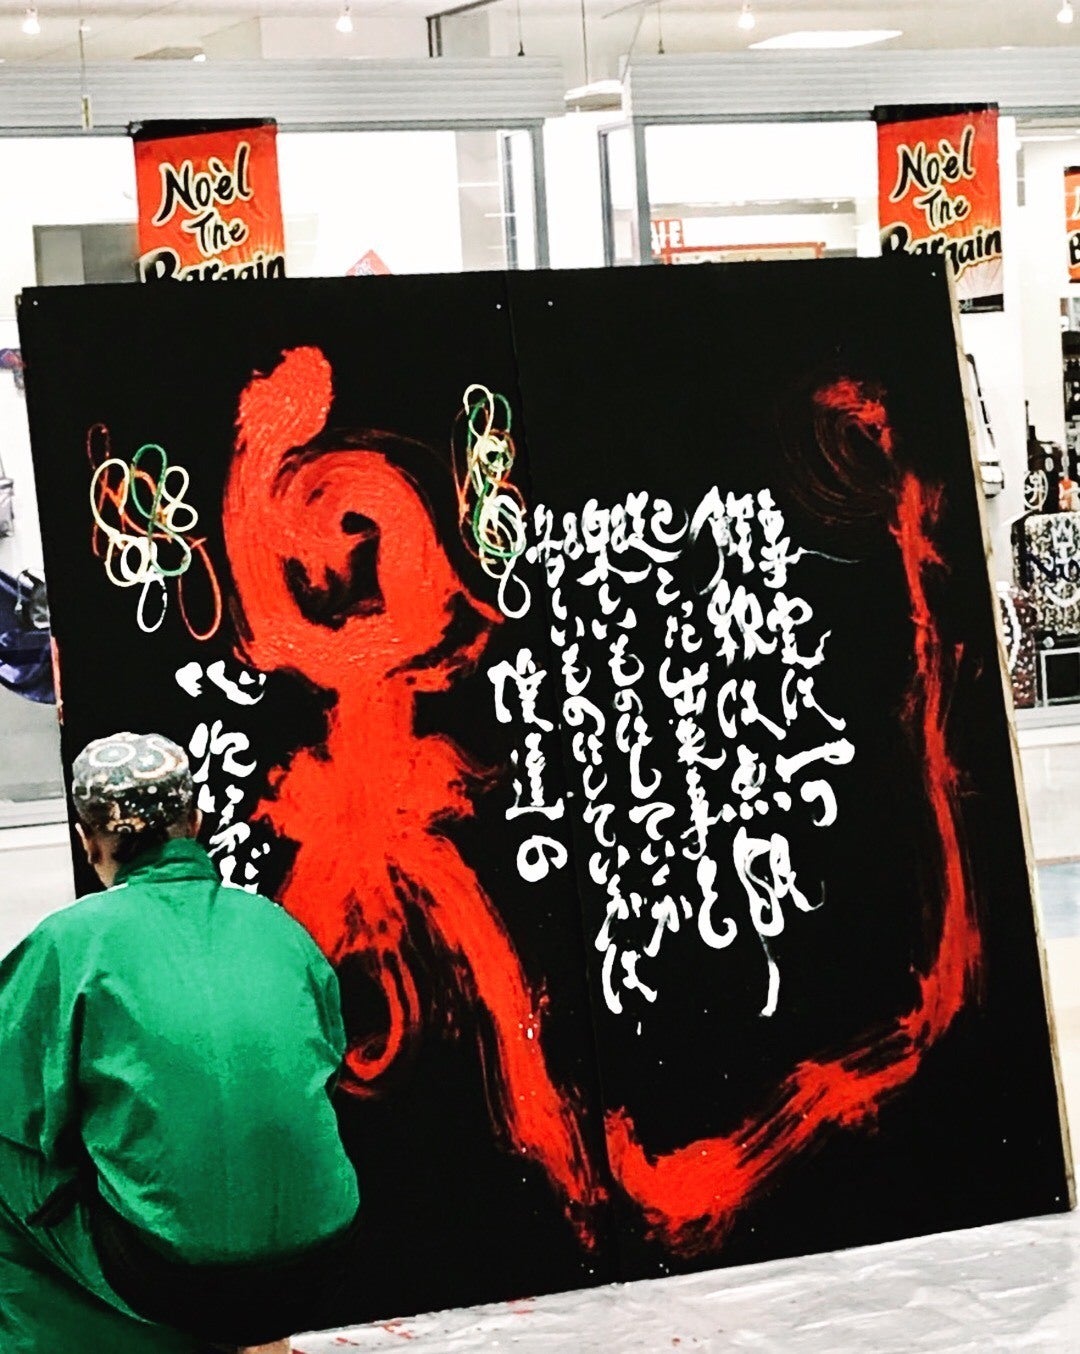 Noèl
The
Bargain
Noèl
The
Bargain
事実は一つ
解釈は無限
起こった出来事を
楽しいものにしていくか
苦しいものにしていくかは
僕達の
心次第だ